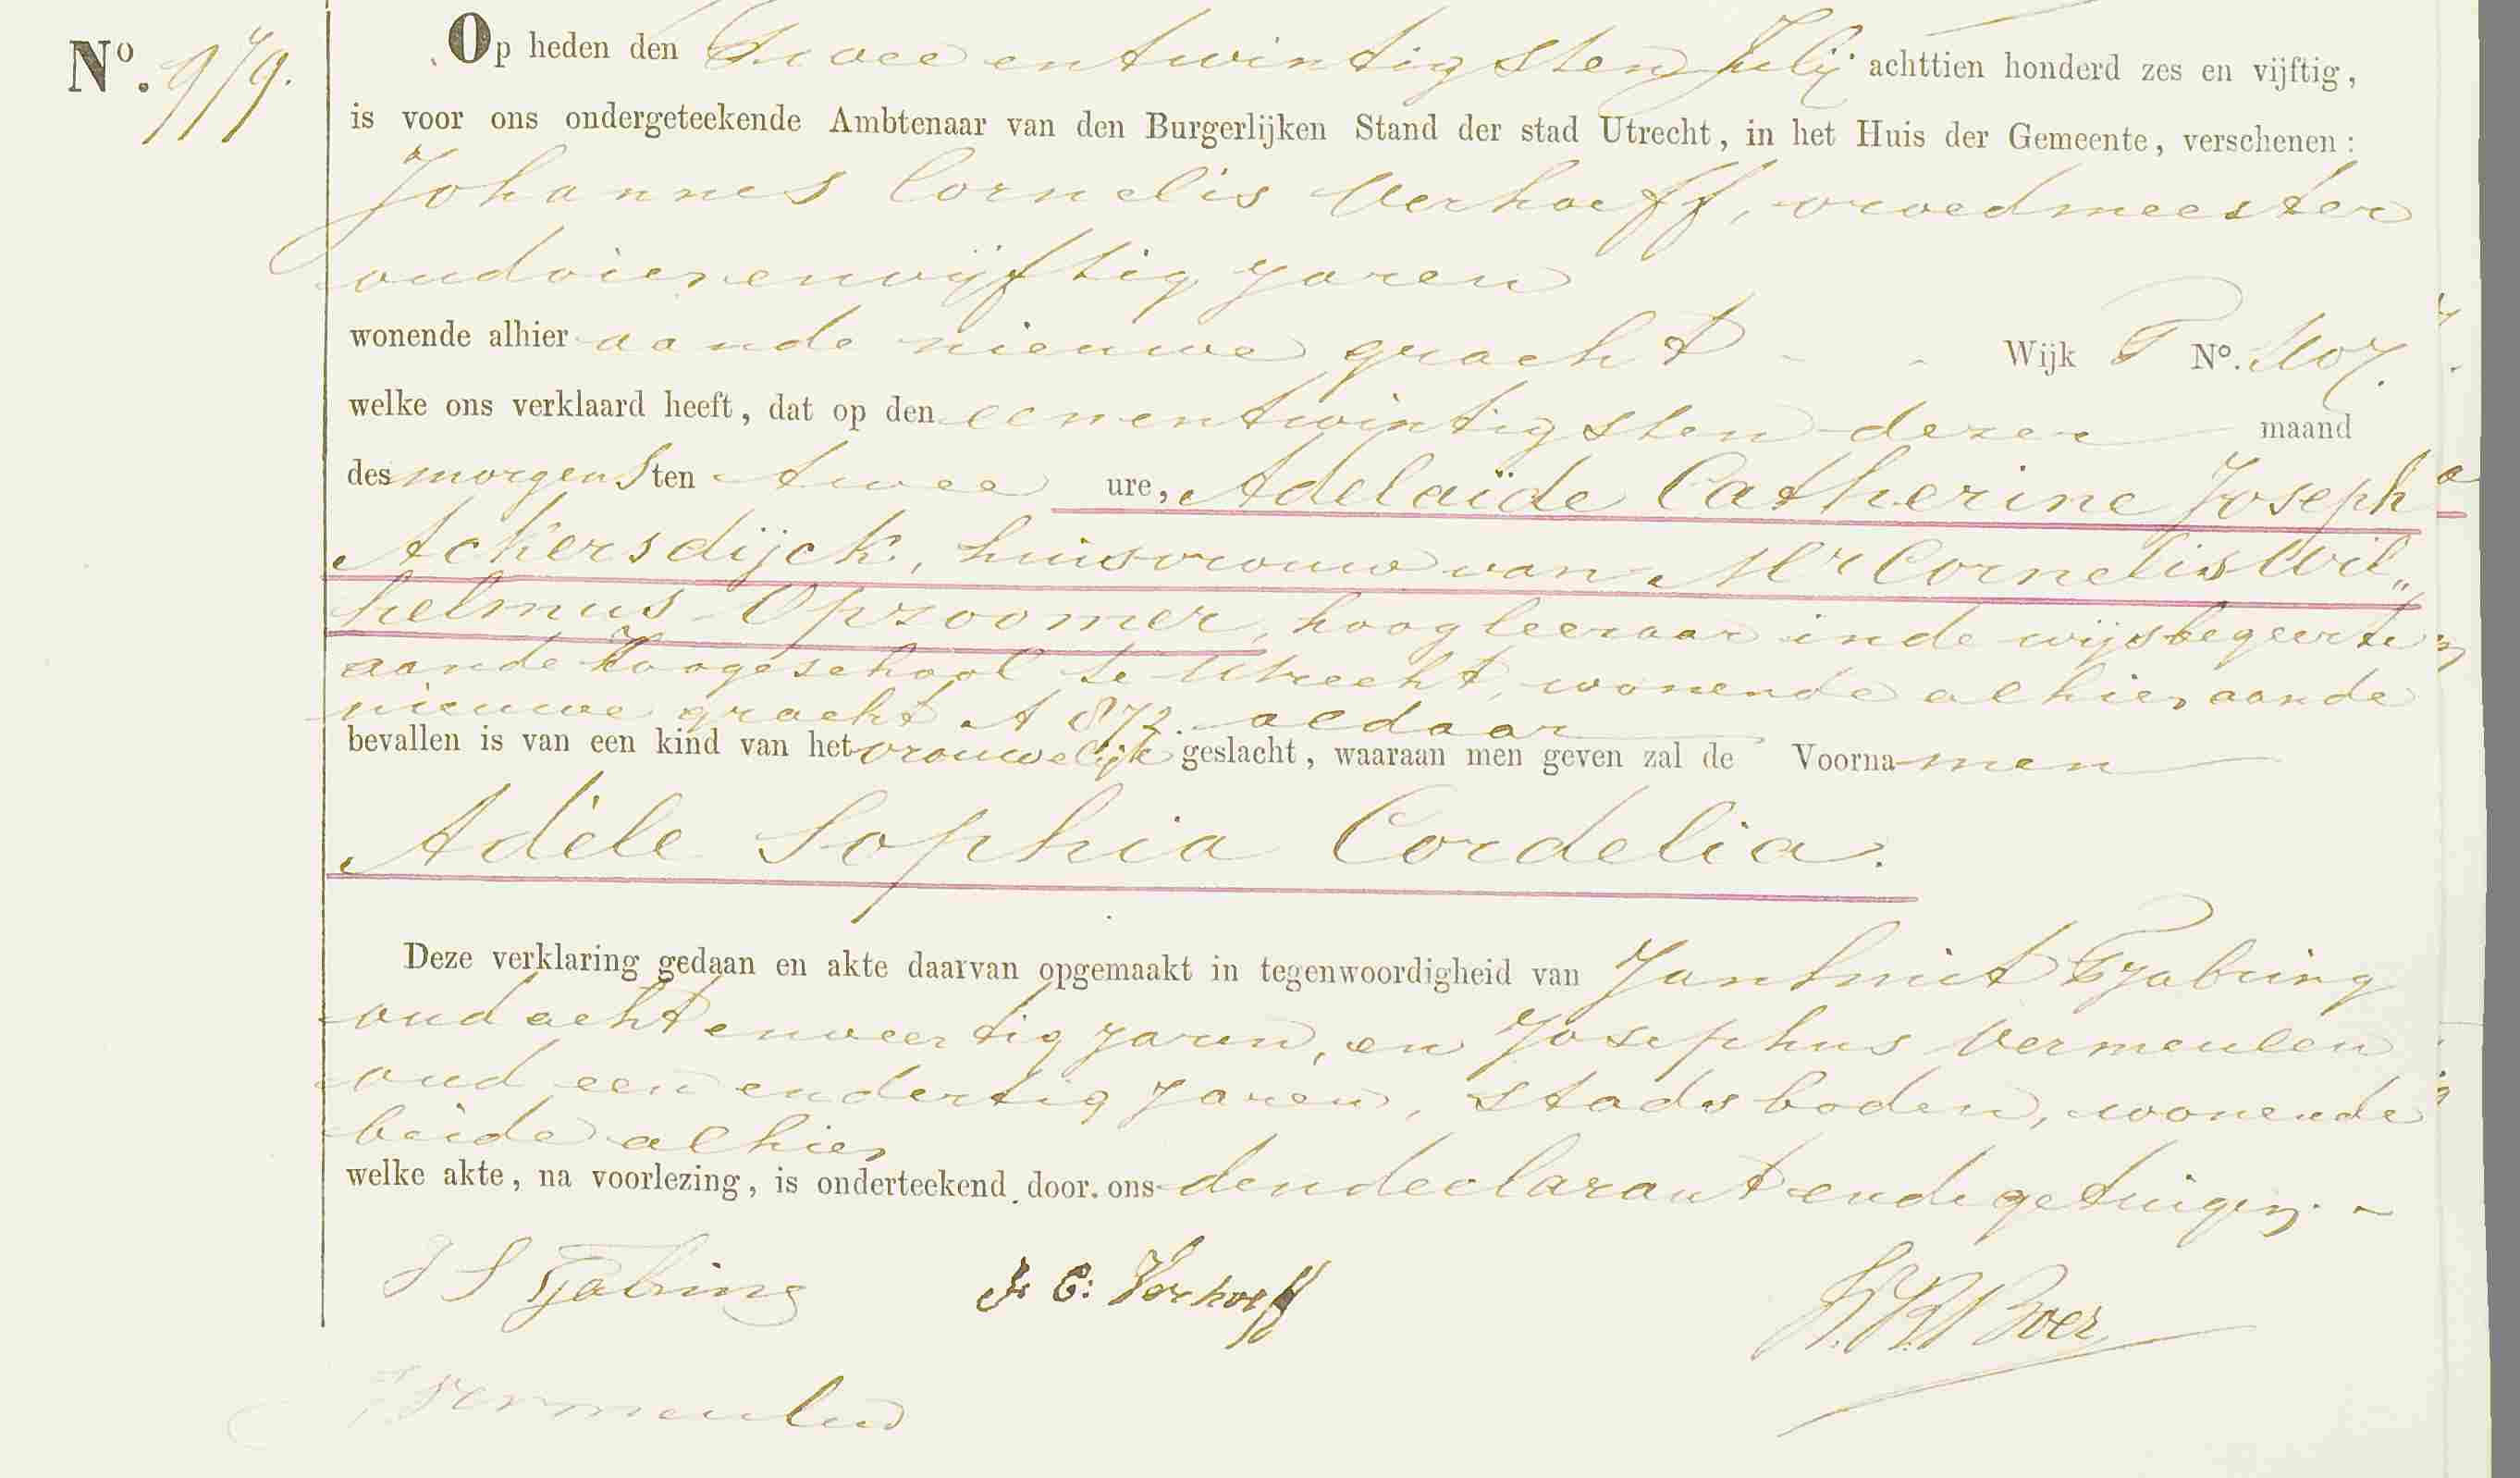 No. 979.
Op heden den twee en twintigsten Julij achttien honderd zes en vijftig,
is voor ons ondergeteekende Ambtenaar van den Burgerlijken Stand der stad Utrecht, in het Huis der Gemeente, verschenen:
Johannes Cornelis Verhoeff, vroedmeester
oud vier en vijftig jaren
wonende alhier aan de nieuwe gracht Wijk No.
welke ons verklaard heeft, dat op den een en twintigsten dezer maand
des morgens ten twee ure, Adelaïde Catherine Joseph
Ackersdijck, huisvrouw van Mr Cornelis Wil„
helmus Opzoomer, hoogleeraar in de wijsbegeerte
aan de Hoogeschool te Utrecht, wonende alhier aan de
nieuwe gracht A 872. aldaar
bevallen is van een kind van het vrouwelijk geslacht, waaraan men geven zal de Voornamen
Adèle Sophia Cordelia.
Deze verklaring gedaan en akte daarvan opgemaakt in tegenwoordigheid van Jan Smit Tjabring
oud acht en veertig jaren, en Josephus Vermeulen
oud een en dertig jaren, stadsboden, wonende
beide alhier
welke akte, na voorlezing, is onderteekend door ons den declarant en de getuigen.
J S Tjabring J: C: Verhoeff Boer
Vermeulen